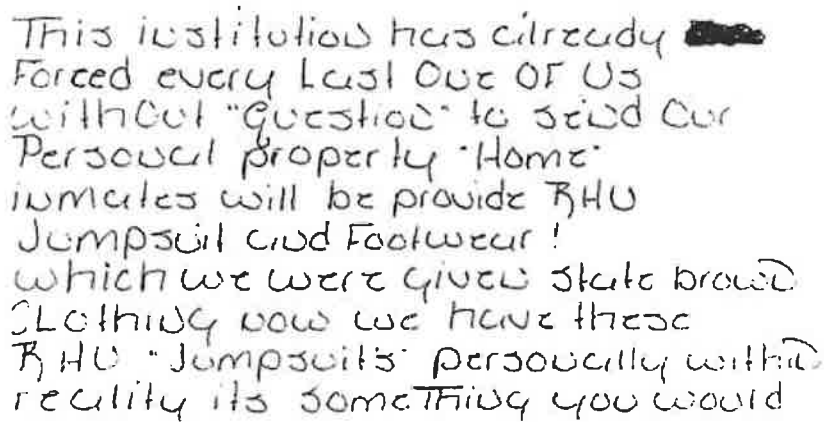 This institution has already
Forced every Last One Of Us
without "Question" to send Our
Personal property "Home"
inmates will be provide RHU
Jumpsuit and Footwear!
which we were given state brown
CLothing now we have these
RHU "Jumpsuits" personally within
reality its someThing you would